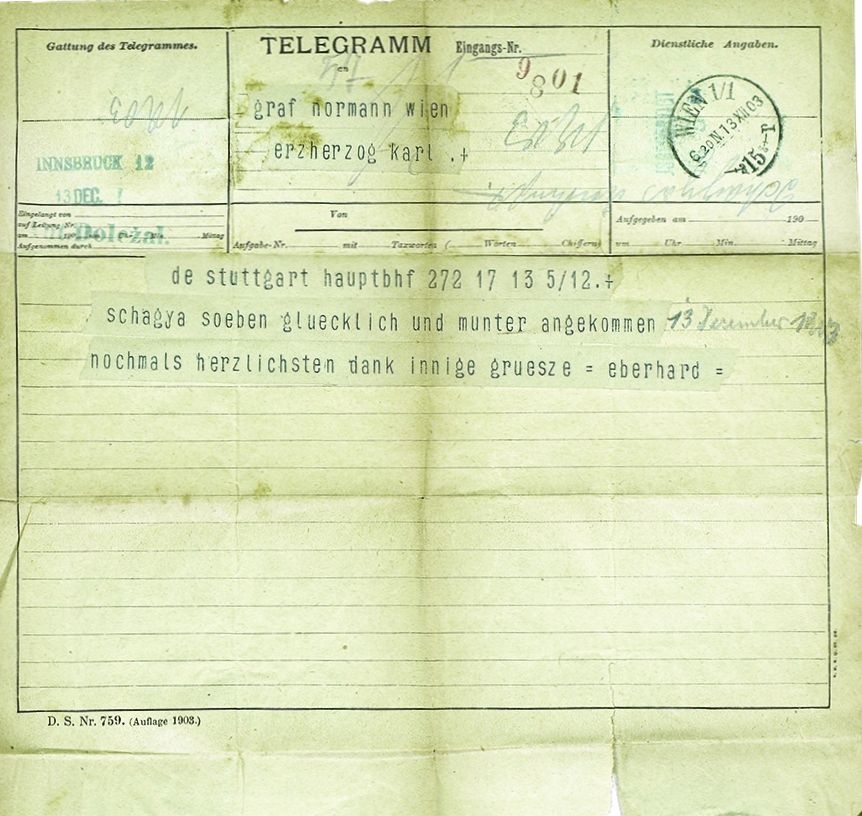 Gattung des Telegrammes.
TELEGRAMM
Eingangs-Nr.
Dienstliche Angaben.
an
9
801
graf normann wien
erzherzog karl .+
WIEN 1/1
13 XII 03
INNSBRUCK 12
13 DEC.
Eingelangt von
auf Leitung Nr.
am 190 Uhr Min. Mittag
Aufgenommen durch
Doležal.
Von
Aufgabe-Nr. mit Taxworten ( Worten Chiffern)
Aufgegeben am 190
um Uhr Min. Mittag
de stuttgart hauptbhf 272 17 13 5/12.+
schagya soeben gluecklich und munter angekommen 13 Dezember 1903
nochmals herzlichsten dank innige gruesze = eberhard =
D. S. Nr. 759. (Auflage 1903.)